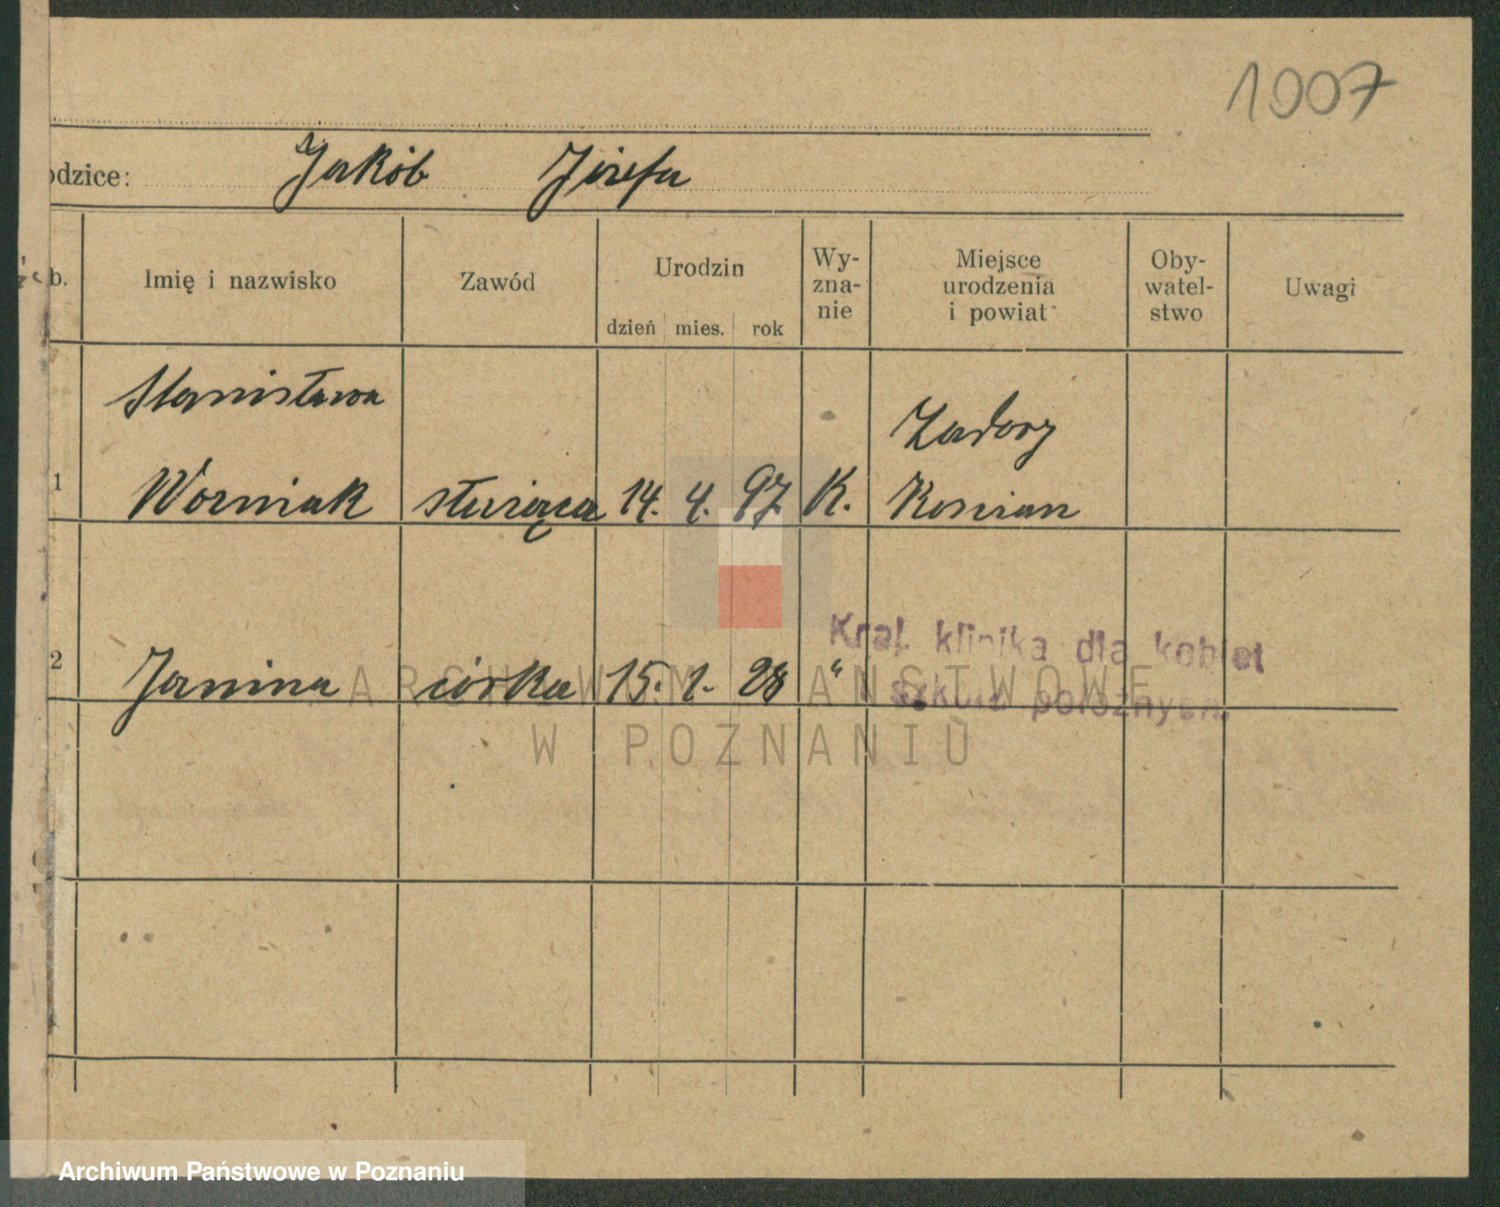 1007
odzice: Jakób Józefa
b. Imię i nazwisko Zawód Urodzin dzień mies. rok Wy-zna-nie Miejsce urodzenia i powiat Oby-watel-stwo Uwagi
Stanisława Zadory
1 Woźniak służąca 14. 4. 97 K. Kościan
Kraj. klinika dla kobiet
2 Janina córka 15. 1. 28 "
i szkoła położnych.
ARCHIWUM PAŃSTWOWE
W POZNANIU
Archiwum Państwowe w Poznaniu